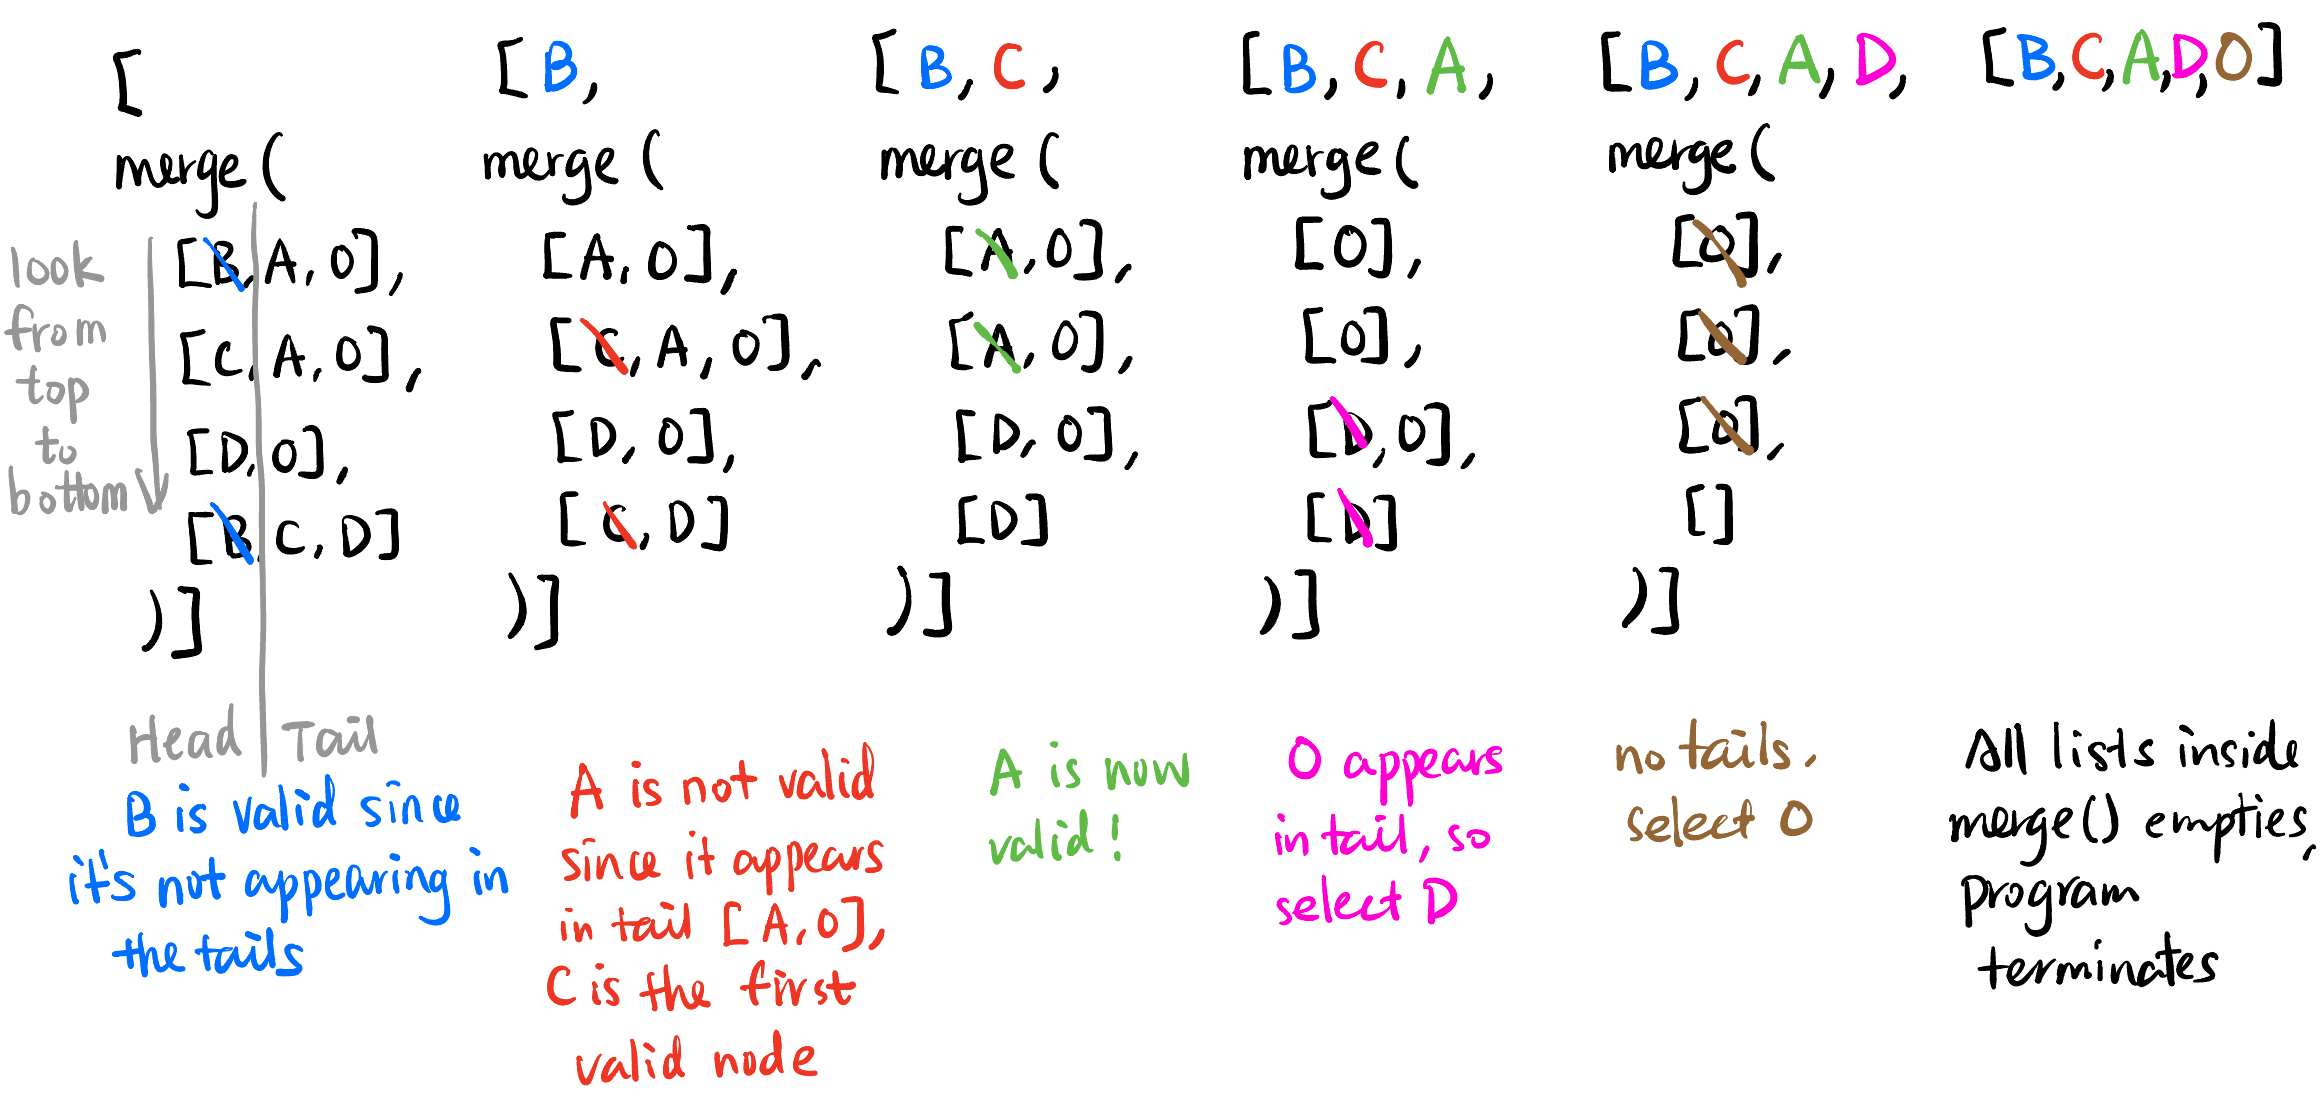 [
merge (
[B, A, O],
[C, A, O],
[D, O],
[B, C, D]
)]
look
from
top
to
bottom
Head | Tail
B is valid since
it's not appearing in
the tails
[B,
merge (
[A, O],
[C, A, O],
[D, O],
[C, D]
)]
A is not valid
since it appears
in tail [A, O],
C is the first
valid node
[B, C,
merge (
[A, O],
[A, O],
[D, O],
[D]
)]
A is now
valid!
[B, C, A,
merge (
[O],
[O],
[D, O],
[D]
)]
O appears
in tail, so
select D
[B, C, A, D,
merge (
[O],
[O],
[O],
[]
)]
no tails.
select O
[B, C, A, D, O]
All lists inside
merge() empties,
program
terminates